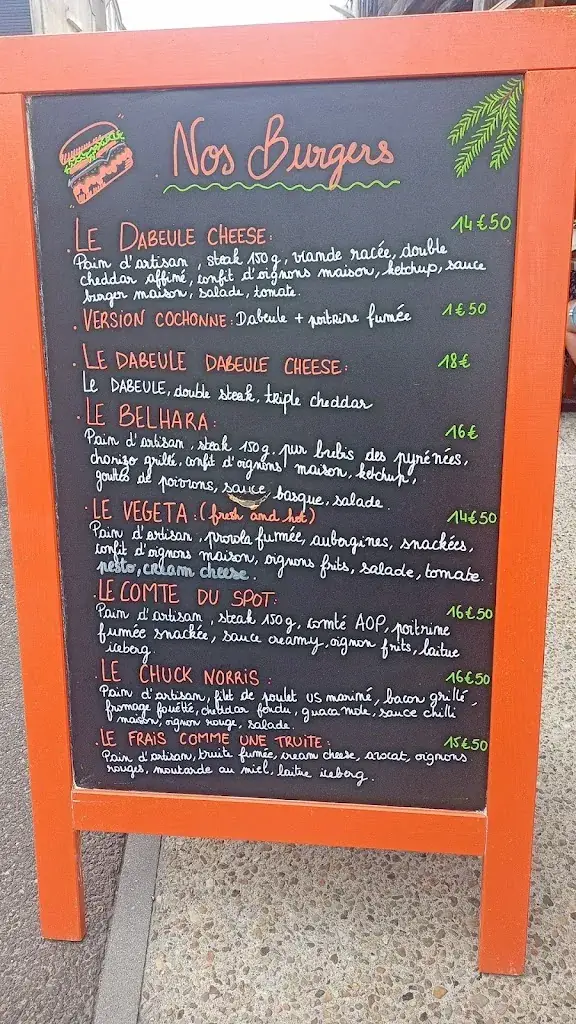 Nos Burgers
LE DABEULE CHEESE: 14€50
Pain d'artisan, steak 150g, viande racée, double
cheddar affiné, confit d'oignons maison, ketchup, sauce
burger maison, salade, tomate.
VERSION COCHONNE: Dabeule + poitrine fumée 1€50
LE DABEULE DABEULE CHEESE: 18€
LE DABEULE, double steak, triple cheddar
LE BELHARA: 16€
Pain d'artisan, steak 150g, pur brebis des pyrénées,
chorizo grillé, confit d'oignons maison, ketchup,
de poivrons, sauce basque, salade.
LE VEGETA: (fresh and hot) 14€50
Pain d'artisan, provola fumée, aubergines, snackées,
confit d'oignons maison, oignons frits, salade, tomate.
pesto, cream cheese.
LE COMTE DU SPOT: 16€50
Pain d'artisan, steak 150g, comté AOP, poitrine
fumée snackée, sauce creamy, oignon frits, laitue
iceberg.
LE CHUCK NORRIS: 16€50
Pain d'artisan, filet de poulet US mariné, bacon grillé,
fromage fouetté, cheddar fondu, guacamole, sauce chilli
maison, oignon rouge, salade.
LE FRAIS COMME UNE TRUITE: 15€50
Pain d'artisan, truite fumée, cream cheese, avocat, oignons
rouges, moutarde au miel, laitue iceberg.